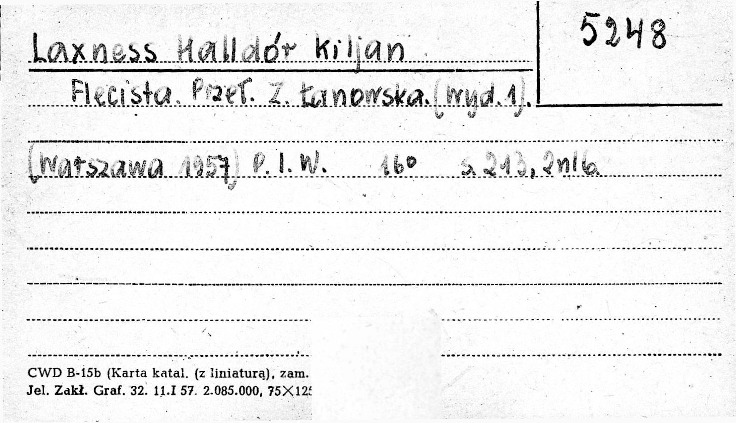 5248
Laxness Halldór Kiljan
Flecista. Przeł. Z. Łanowska. (Wyd. 1).
(Warszawa 1957) P. I. W. 16° s. 213, 2nlb.
CWD B-15b (Karta katal. (z liniaturą), zam.
Jel. Zakł. Graf. 32. 11.I 57. 2.085.000, 75×125